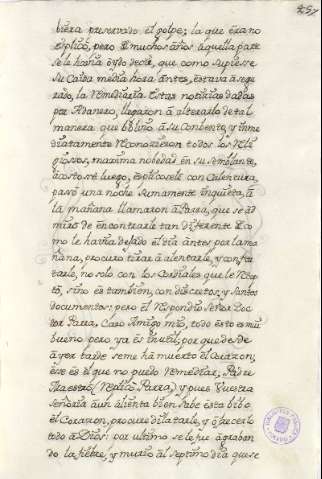 257
biera preservado el golpe; la que era no
esplicò, pero à muchos años à quella parte
se le havia oydo decir, que como supiesse
su Caida media hora antes, estava asegu-
rado, la remediaria. Estas noticias dadas
por Adanero, llegaron à alterarle de tal
manera que bolbiò à su Conbento, y inme
diatamente reconocieron todos los Reli
giossos, maxima nobedad en su semblante,
acostose luego, esplicosele con Calentura,
passò una noche sumamente inquieta, à
la mañana llamaron à Parra, que se ad
mirò de encontrarle tan diferente de co
mo le havia dejado el dia antes por la ma
ñana, procurò tirar à alentarle, y confor
tarle, no solo con los Cordiales que le Rece
tò, sino es tambien, con discretos, y santos
documentos: pero èl Respondiò Señor Doc
tor Parra, Caro Amigo mio, todo esto es mui
bueno pero ya es inutil; porque desde
ayer tarde se me hà muerto el Corazon,
èse es èl que no puedo remediar, Padre
Maestro (replicò Parra) y pues Vuestra
Señoria aun alienta bien sabe esta bibo
el Corazon, procure dilatarle, y ofrecerlo
todo à Dios: por ultimo se le fue agraban
do la fiebre, y muriò al septimo dia que se